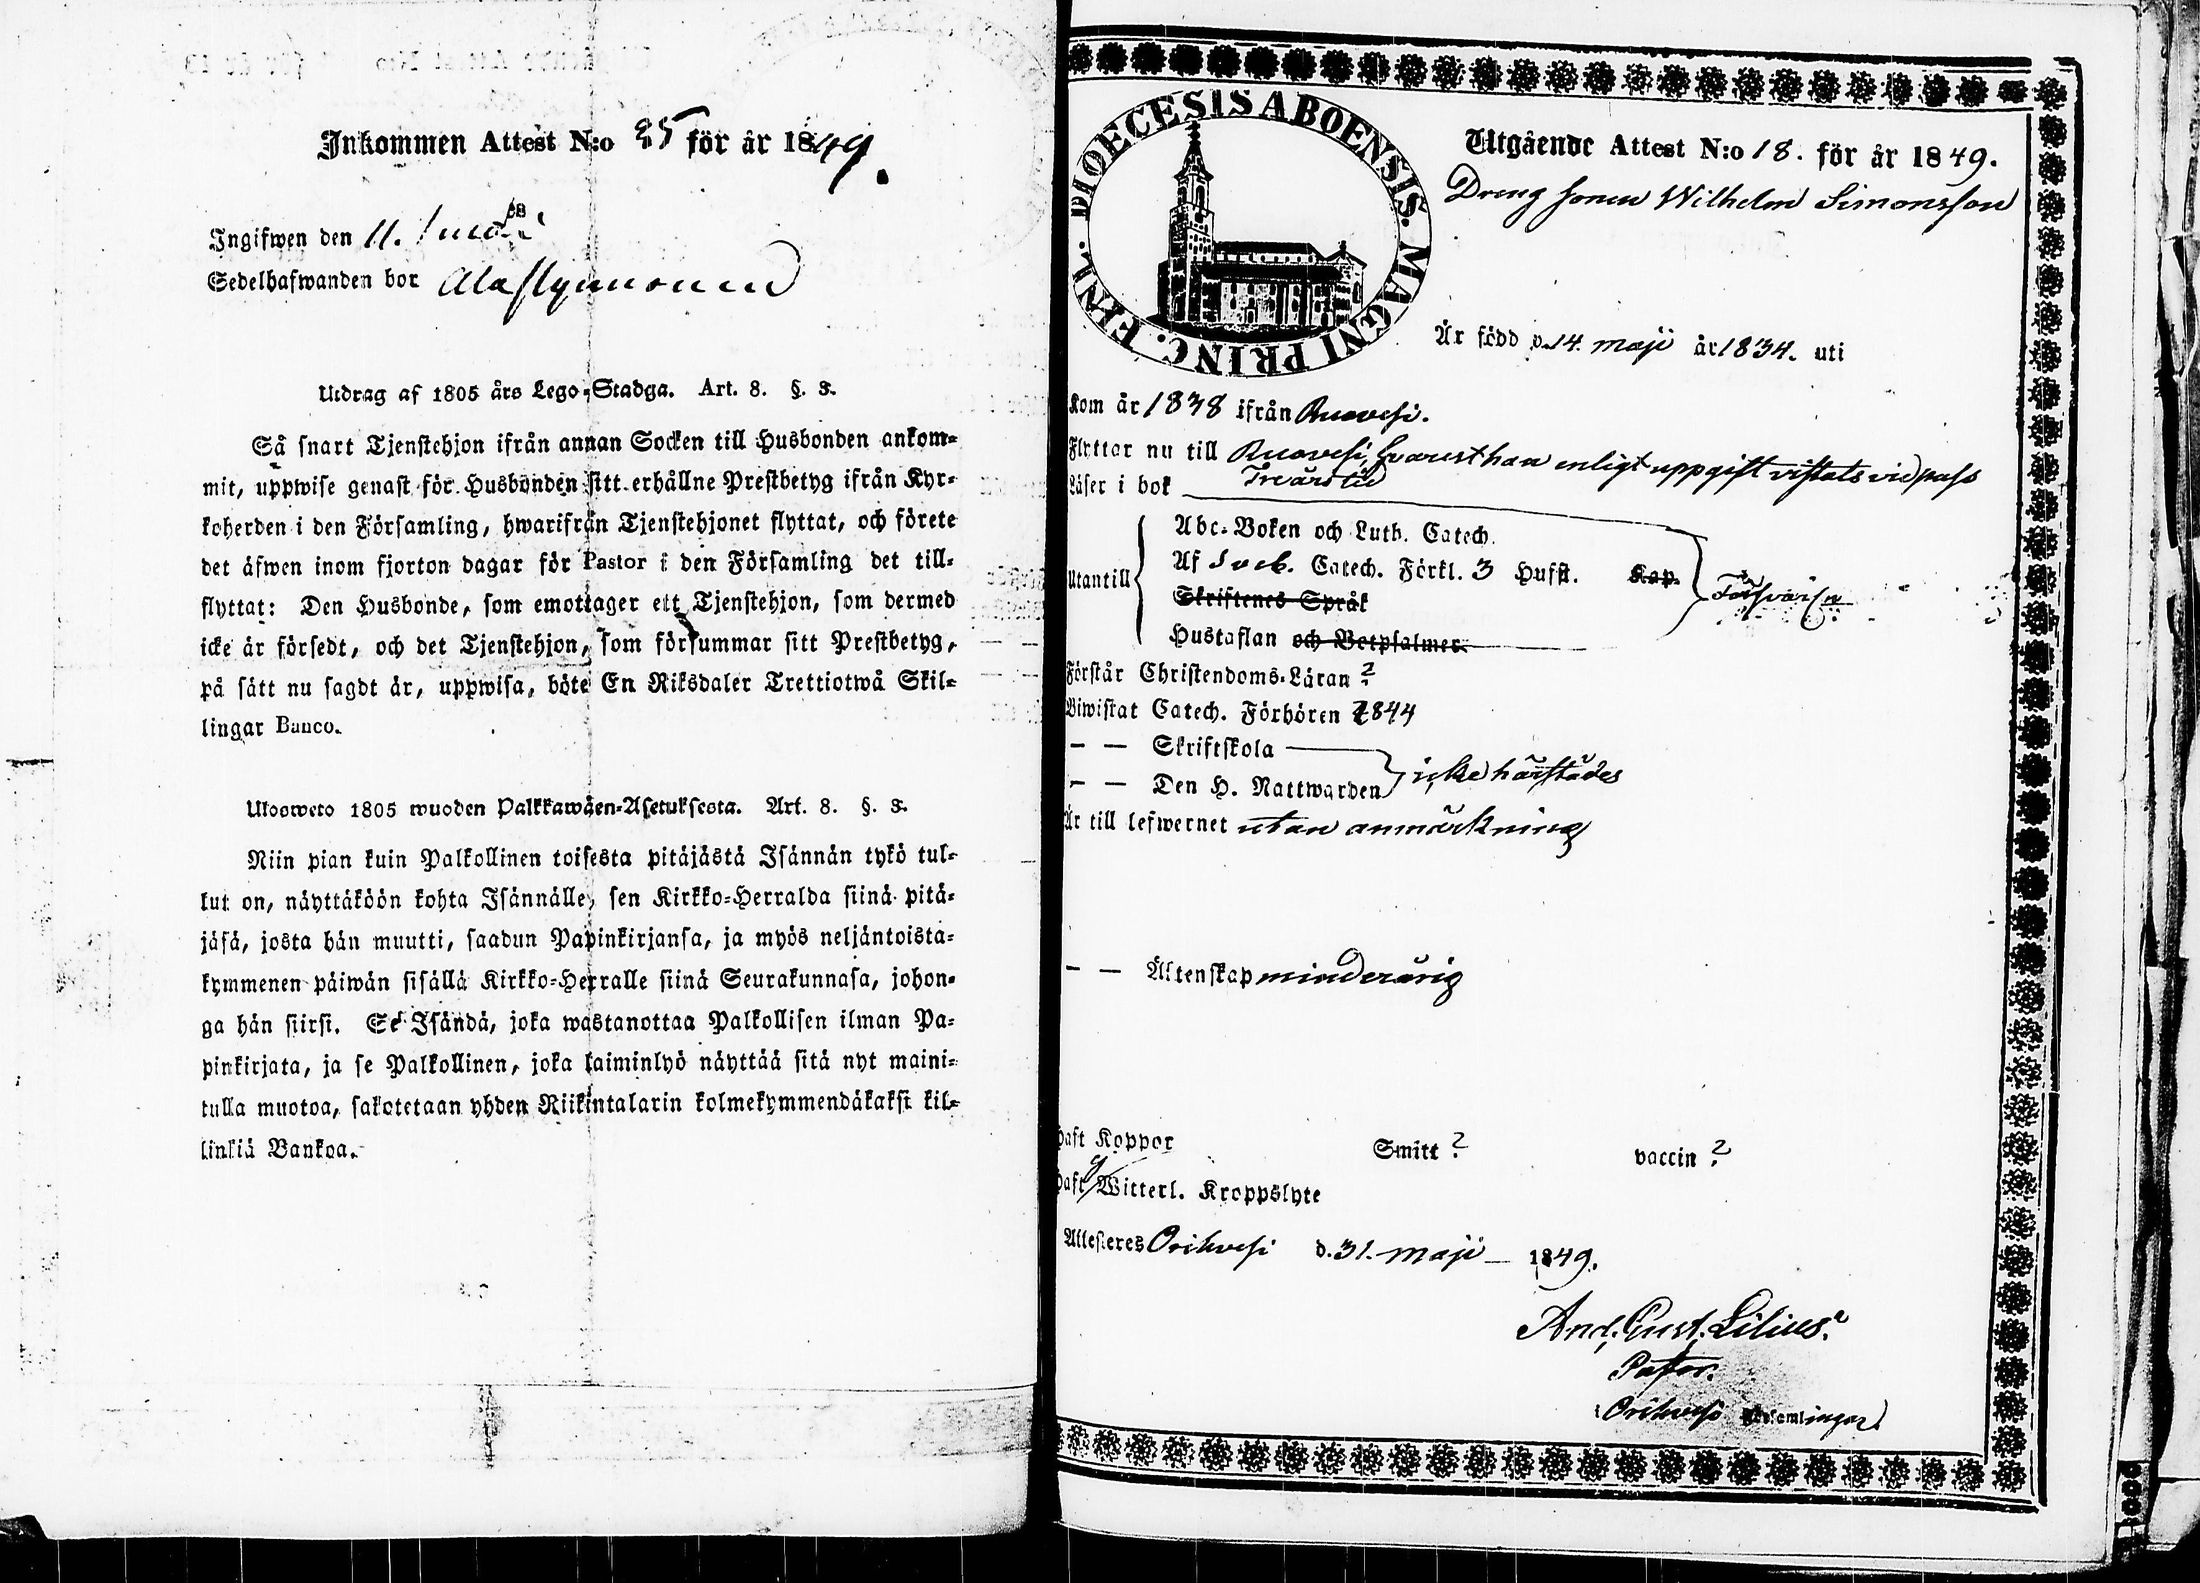 Inkommen Attest N:o 25 för år 1849.
Ingifwen den 11.
Sedelhafwanden bor
Utdrag af 1805 års Lego-Stadga. Art. 8. §. 3.
Så snart Tjenstehjon ifrån annan Socken till Husbonden ankom-
mit, uppwise genast för Husbonden sitt erhållne Prestbetyg ifrån Kyr-
koherden i den Församling, hwarifrån Tjenstehjonet flyttat, och förete
det äfwen inom fjorton dagar för Pastor i den Församling det till-
flyttat: Den Husbonde, som emottager ett Tjenstehjon, som dermed
icke är försedt, och det Tjenstehjon, som försummar sitt Prestbetyg,
på sätt nu sagdt är, uppwisa, böte En Riksdaler Trettiotwå Skil-
lingar Banco.
Ulosweto 1805 wuoden Palkkawäen-Asetuksesta. Art. 8. §. 3.
Niin pian kuin Palkollinen toisesta pitäjästä Isännän tykö tul-
lut on, näyttäköön kohta Isännälle, sen Kirkko-Herralda siinä pitä-
jäsä, josta hän muutti, saadun Papinkirjansa, ja myös neljäntoista-
kymmenen päiwän sisällä Kirkko-Herralle siinä Seurakunnasa, johon-
ga hän siirsi. Se Isändä, joka wastanottaa Palkollisen ilman Pa-
pinkirjata, ja se Palkollinen, joka laiminlyö näyttää sitä nyt maini-
tulla muotoa, sakotetaan yhden Riikintalarin kolmekymmendäkaksi kil-
linkiä Bankoa.
DIOECESIS ABOENSIS. MAGNI PRINC. FINL.
Utgående Attest N:o 18. för år 1849.
Dreng sonen Wilhelm Simonsson
Är född d. 14. maji år 1834. uti
Kom år 1838 ifrån Ruovesi.
Flyttar nu till Ruovesi, hvarest han enligt uppgift vistats vid pass
Tre års tid
Läser i bok
Abc-Boken och Luth. Catech.
Utantill Af Sveb. Catech. Förkl. 3 Hufst. Kap.
Skriftenes Språk
Hustaflan och Botpsalmer.
Förstår Christendoms-Läran ?
Biwistat Catech. Förhören 1844
— — Skriftskola
— — Den H. Nattwarden icke härstädes
Är till lefwernet utan anmärkning
— — Äktenskap minderårig
Haft Koppor Smitt ? vaccin ?
Haft Witterl. Kroppslyte
Attesteres Orihvesi d. 31. maji — 1849.
And. Gust. Lilius.
Pastor.
i Orihvesi Församlingar